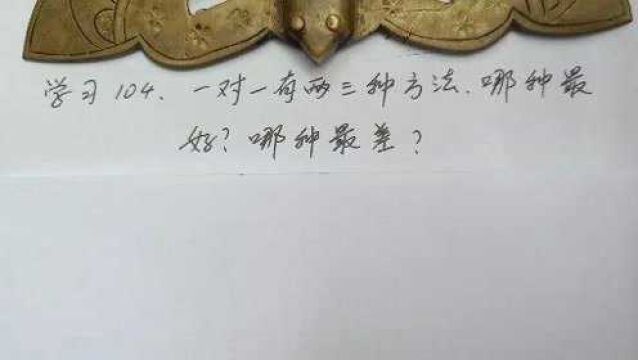 学习104、一对一有两三种方法.哪种最
好?哪种最差?